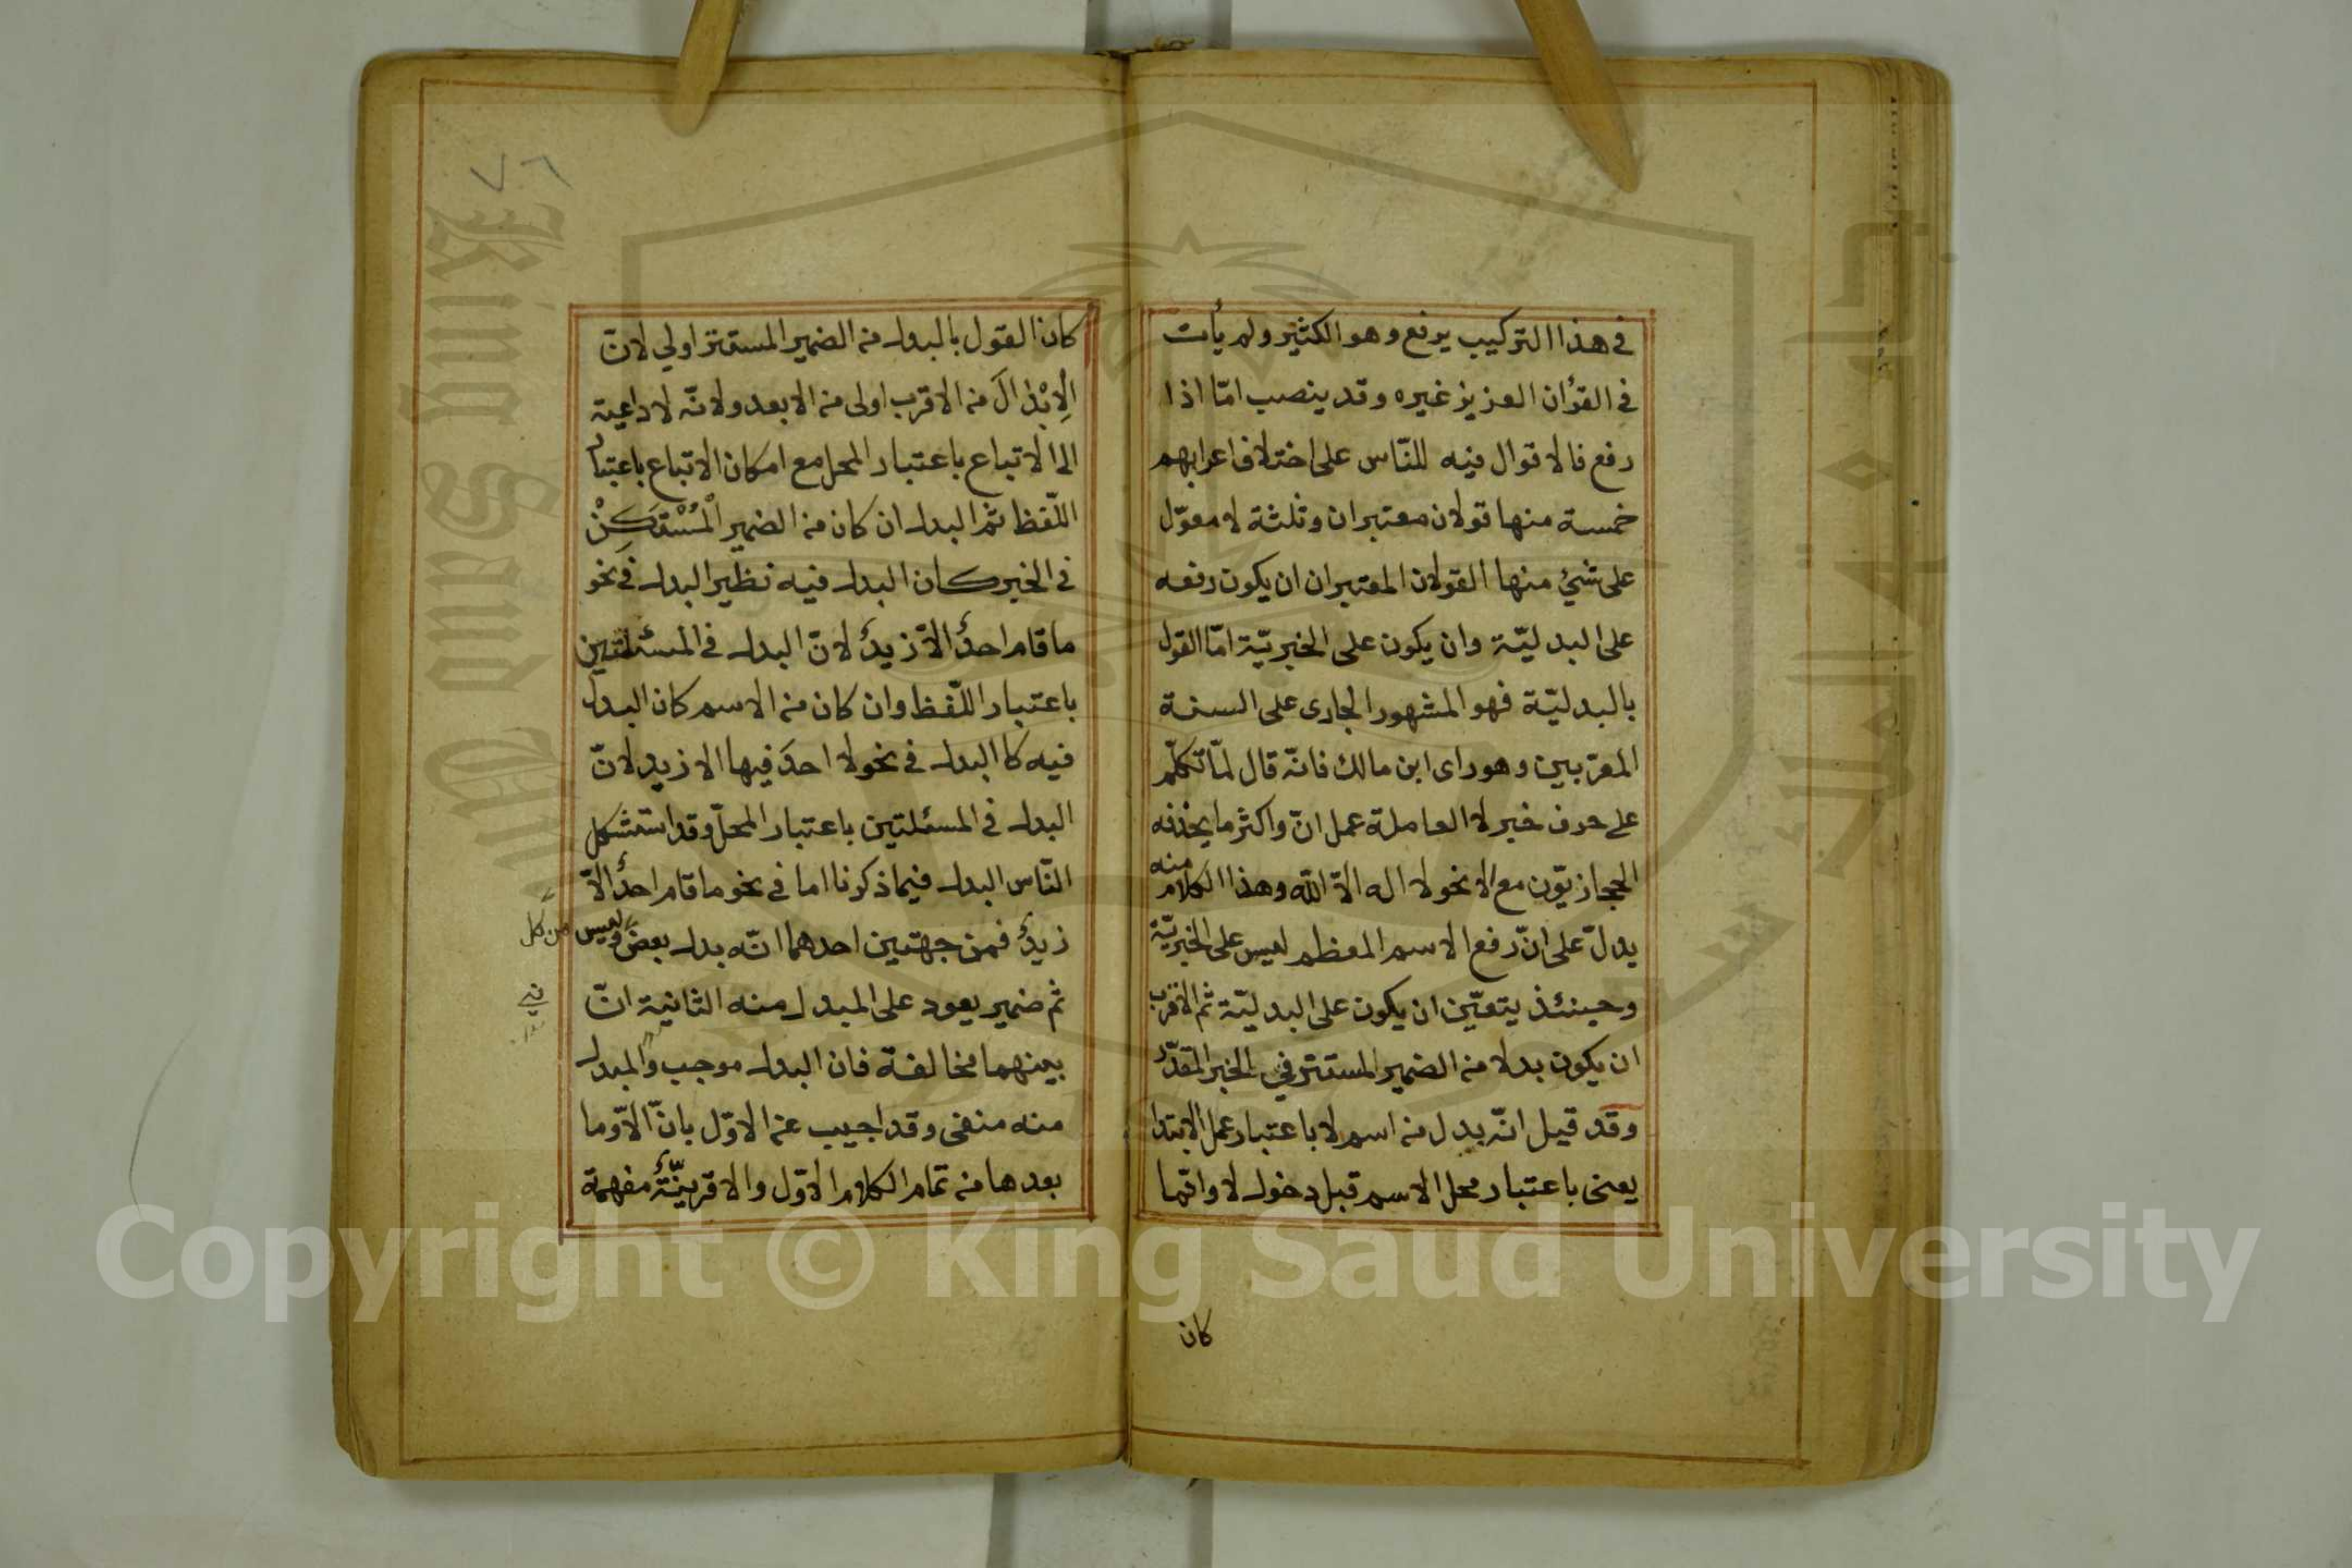 في هذا التركيب يرفع وهو الكثير ولم يأت
في القرأن العزيز غيره وقد ينصب امّا اذا
رفع فالاقوال فيه للنّاس على اختلاف اعرابهم
خمسة منها قولان معتبران وثلثة لا معوّل
على شيئ منها القولان المعتبران ان يكون رفعه
على البدليّة وان يكون على الخبريّة امّا القول
بالبدليّة فهو المشهور الجارى على السنة
المعرّبين وهو راى ابن مالك فانّه قال لمّا تكلّم
على حذف خبر لا العاملة عمل انّ واكثر ما يحذفه
الحجازيّون مع الا نحو لا اله الاّ اللّه وهذا الكلام منه
يدلّ على انّ رفع الاسم المعظم ليس على الخبريّة
وحينئذ يتعيّن ان يكون على البدليّة ثم الاقرب
ان يكون بدلا من الضمير المستتر في الخبر المقدّر
وقد قيل انّه بدل من اسم لا باعتبار عمل الابتدا
يعنى باعتبار محل الاسم قبل دخول لا وانّما
كان
٧٦
كان القول بالبدل من الضمير المستتر اولي لانّ
الْاِبْدَالَ من الاقرب اولى من الابعد ولانّه لا داعية
الى الاتباع باعتبار المحل مع امكان الاتباع باعتبار
اللّفظ ثم البدل ان كان من الضمير الْمُسْتَكِنْ
في الخبر كان البدل فيه نظير البدل في نحو
ما قام احدٌ الاّ زيدٌ لانّ البدل في المسئلتين
باعتبار اللّفظ وان كان من الاسم كان البدل
فيه كا البدل في نحو لا احدَ فيها الا زيد لانّ
البدل في المسئلتين باعتبار المحلّ وقد استشكل
النّاس البدل فيما ذكرنا اما في نحو ما قام احدٌ الاّ
زيدٌ فمن جهتين احدهما انّه بدل بعض وليس من كل
ثم ضمير يعود على المبدل منه الثانية انّ
بينهما مخالفة فان البدل موجب والمبدل
منه منفى وقد اجيب عن الاوّل بانّ الاّ وما
بعدها من تمام الكلام الاوّل والا قرينّةٌ مفهمة